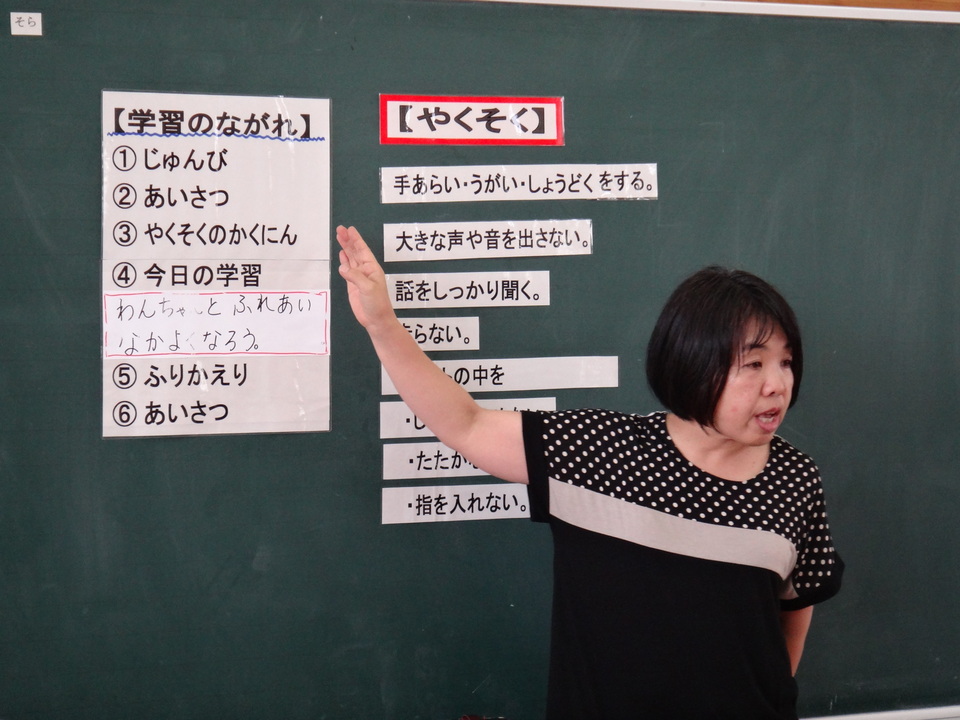 そら
【学習のながれ】
① じゅんび
② あいさつ
③ やくそくのかくにん
④ 今日の学習
わんちゃんと ふれあい
なかよくなろう。
⑤ ふりかえり
⑥ あいさつ
【やくそく】
手あらい・うがい・しょうどくをする。
大きな声や音を出さない。
話をしっかり聞く。
らない。
の中を
・たたか
・指を入れない。